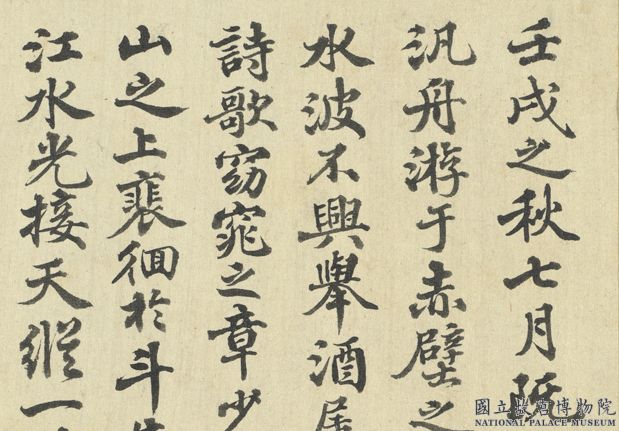 壬戌之秋七月既
汎舟游于赤壁之
水波不興舉酒屬
詩歌窈窕之章少
山之上裵徊於斗牛
江水光接天縱一
國立故宮博物院
NATIONAL PALACE MUSEUM